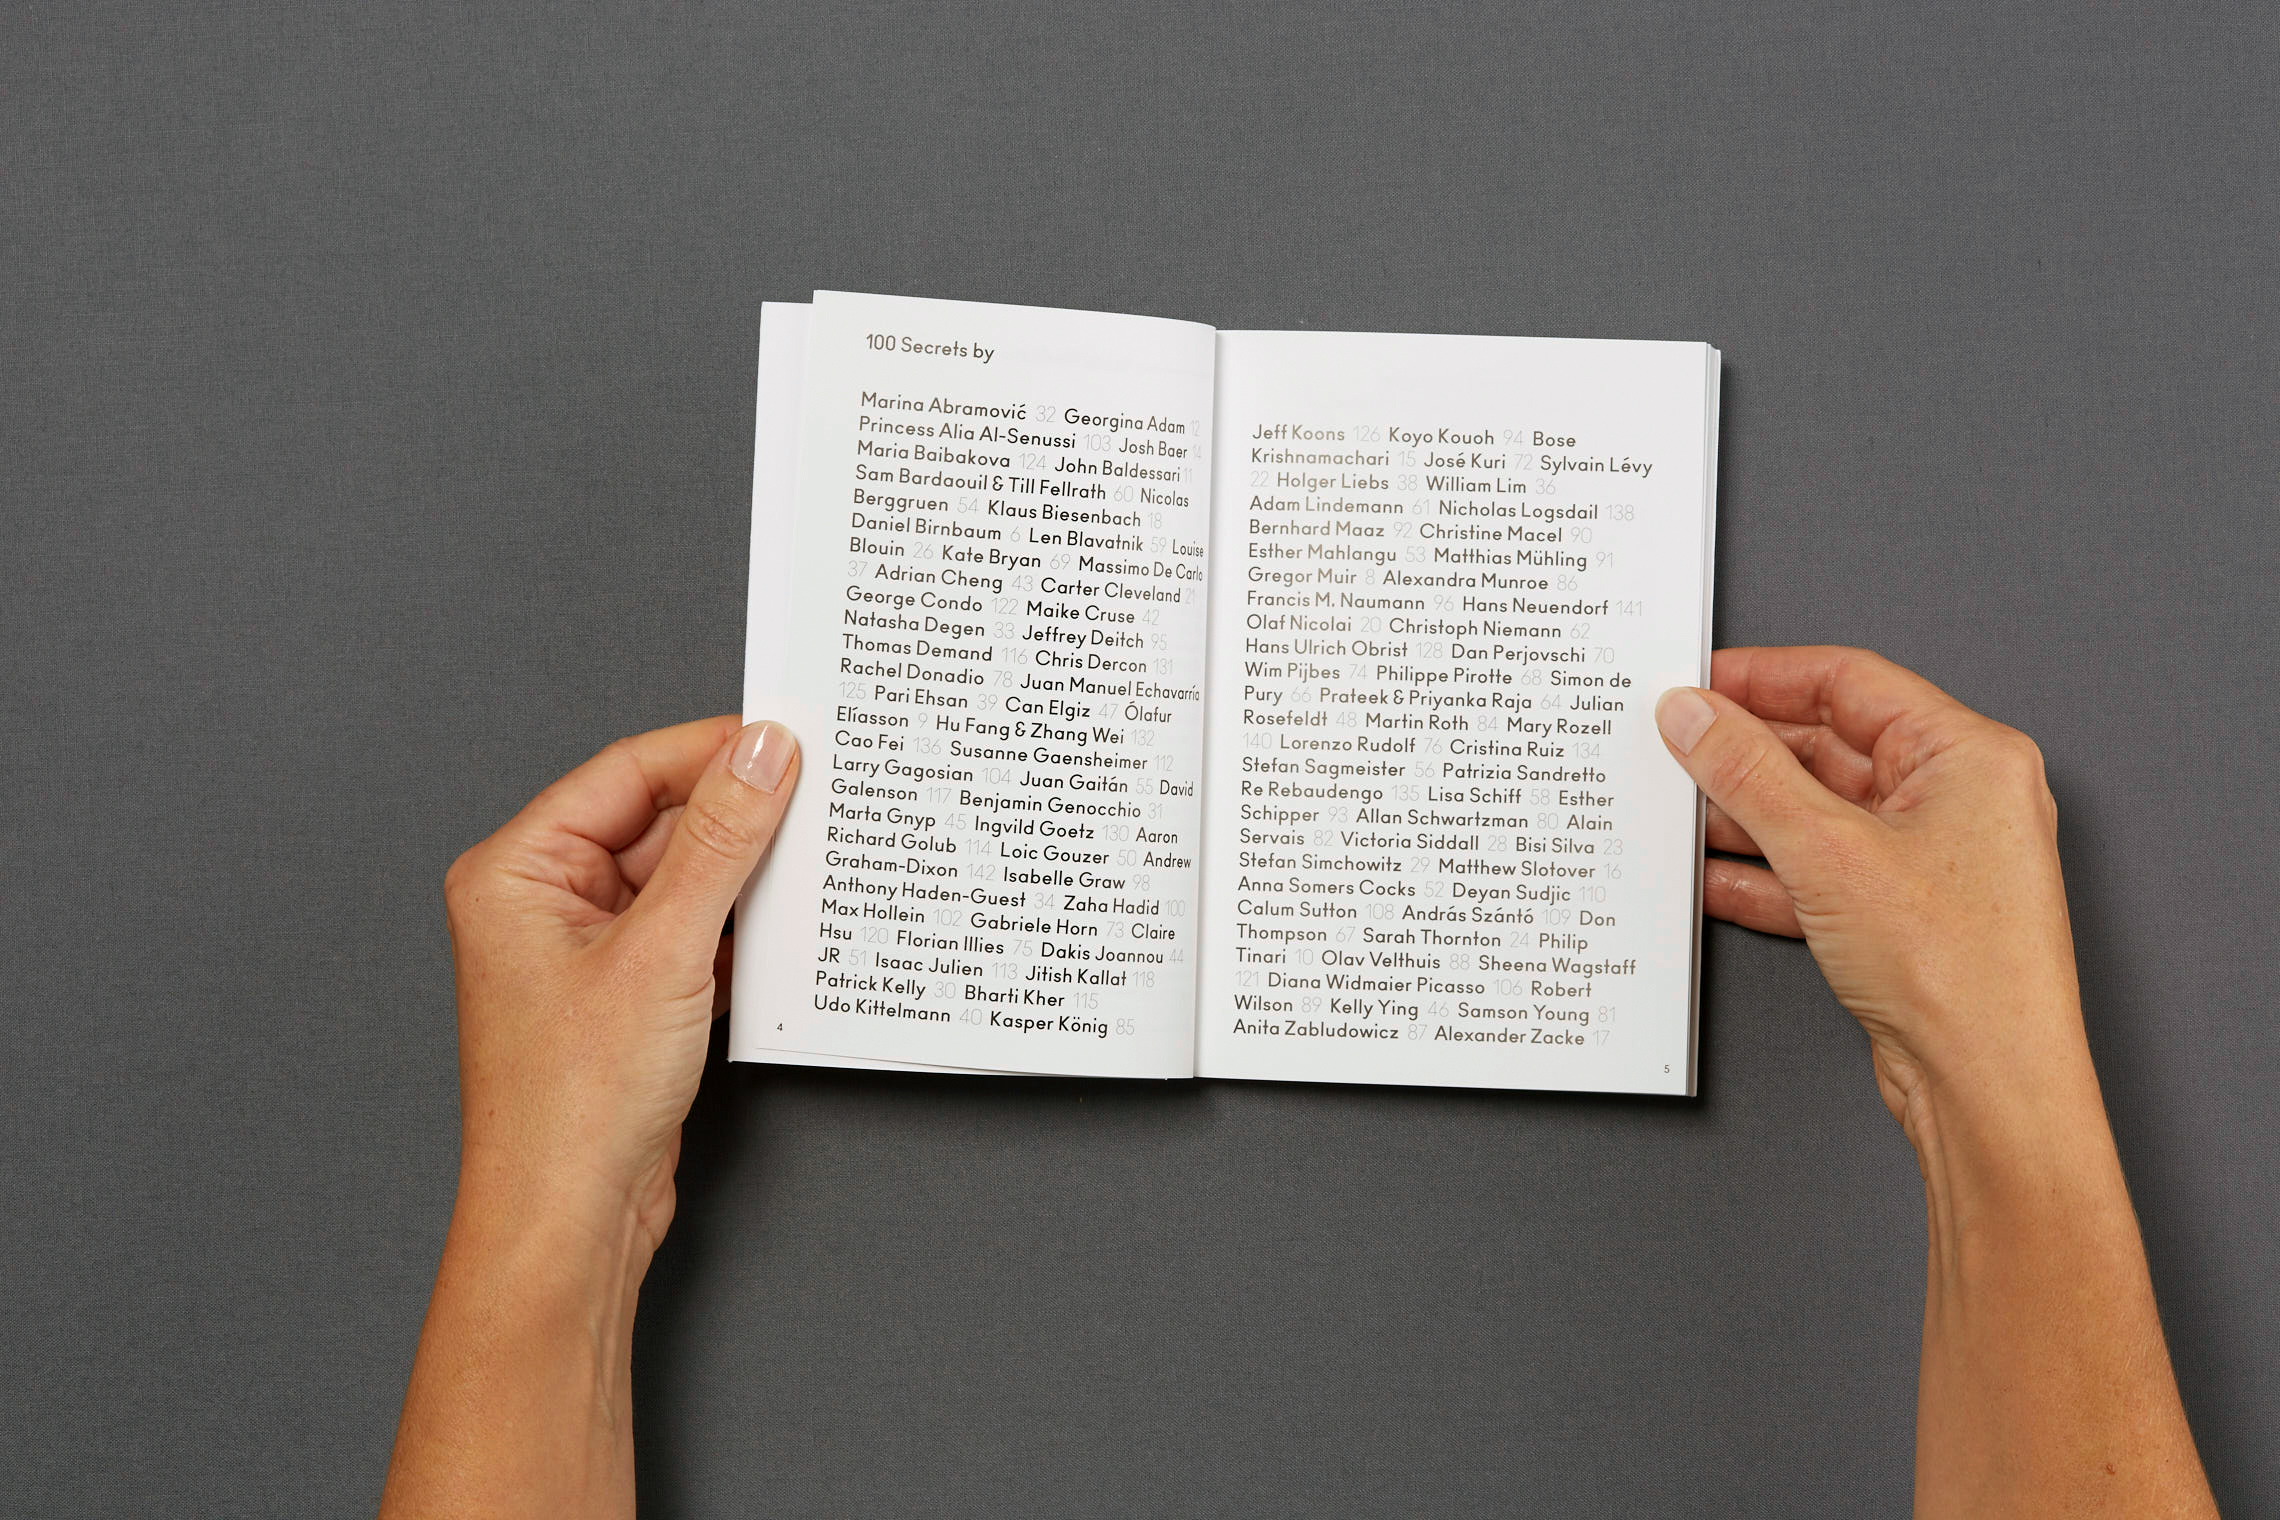 100 Secrets by
Marina Abramović 32 Georgina Adam 12
Princess Alia Al-Senussi 103 Josh Baer 14
Maria Baibakova 124 John Baldessari 11
Sam Bardaouil & Till Fellrath 60 Nicolas
Berggruen 54 Klaus Biesenbach 18
Daniel Birnbaum 6 Len Blavatnik 59 Louise
Blouin 26 Kate Bryan 69 Massimo De Carlo
37 Adrian Cheng 43 Carter Cleveland 21
George Condo 122 Maike Cruse 42
Natasha Degen 33 Jeffrey Deitch 95
Thomas Demand 116 Chris Dercon 131
Rachel Donadio 78 Juan Manuel Echavarría
125 Pari Ehsan 39 Can Elgiz 47 Ólafur
Elíasson 9 Hu Fang & Zhang Wei 132
Cao Fei 136 Susanne Gaensheimer 112
Larry Gagosian 104 Juan Gaitán 55 David
Galenson 117 Benjamin Genocchio 31
Marta Gnyp 45 Ingvild Goetz 130 Aaron
Richard Golub 114 Loic Gouzer 50 Andrew
Graham-Dixon 142 Isabelle Graw 98
Anthony Haden-Guest 34 Zaha Hadid 100
Max Hollein 102 Gabriele Horn 73 Claire
Hsu 120 Florian Illies 75 Dakis Joannou 44
JR 51 Isaac Julien 113 Jitish Kallat 118
Patrick Kelly 30 Bharti Kher 115
Udo Kittelmann 40 Kasper König 85
4
Jeff Koons 126 Koyo Kouoh 94 Bose
Krishnamachari 15 José Kuri 72 Sylvain Lévy
22 Holger Liebs 38 William Lim 36
Adam Lindemann 61 Nicholas Logsdail 138
Bernhard Maaz 92 Christine Macel 90
Esther Mahlangu 53 Matthias Mühling 91
Gregor Muir 8 Alexandra Munroe 86
Francis M. Naumann 96 Hans Neuendorf 141
Olaf Nicolai 20 Christoph Niemann 62
Hans Ulrich Obrist 128 Dan Perjovschi 70
Wim Pijbes 74 Philippe Pirotte 68 Simon de
Pury 66 Prateek & Priyanka Raja 64 Julian
Rosefeldt 48 Martin Roth 84 Mary Rozell
140 Lorenzo Rudolf 76 Cristina Ruiz 134
Stefan Sagmeister 56 Patrizia Sandretto
Re Rebaudengo 135 Lisa Schiff 58 Esther
Schipper 93 Allan Schwartzman 80 Alain
Servais 82 Victoria Siddall 28 Bisi Silva 23
Stefan Simchowitz 29 Matthew Slotover 16
Anna Somers Cocks 52 Deyan Sudjic 110
Calum Sutton 108 András Szántó 109 Don
Thompson 67 Sarah Thornton 24 Philip
Tinari 10 Olav Velthuis 88 Sheena Wagstaff
121 Diana Widmaier Picasso 106 Robert
Wilson 89 Kelly Ying 46 Samson Young 81
Anita Zabludowicz 87 Alexander Zacke 17
5